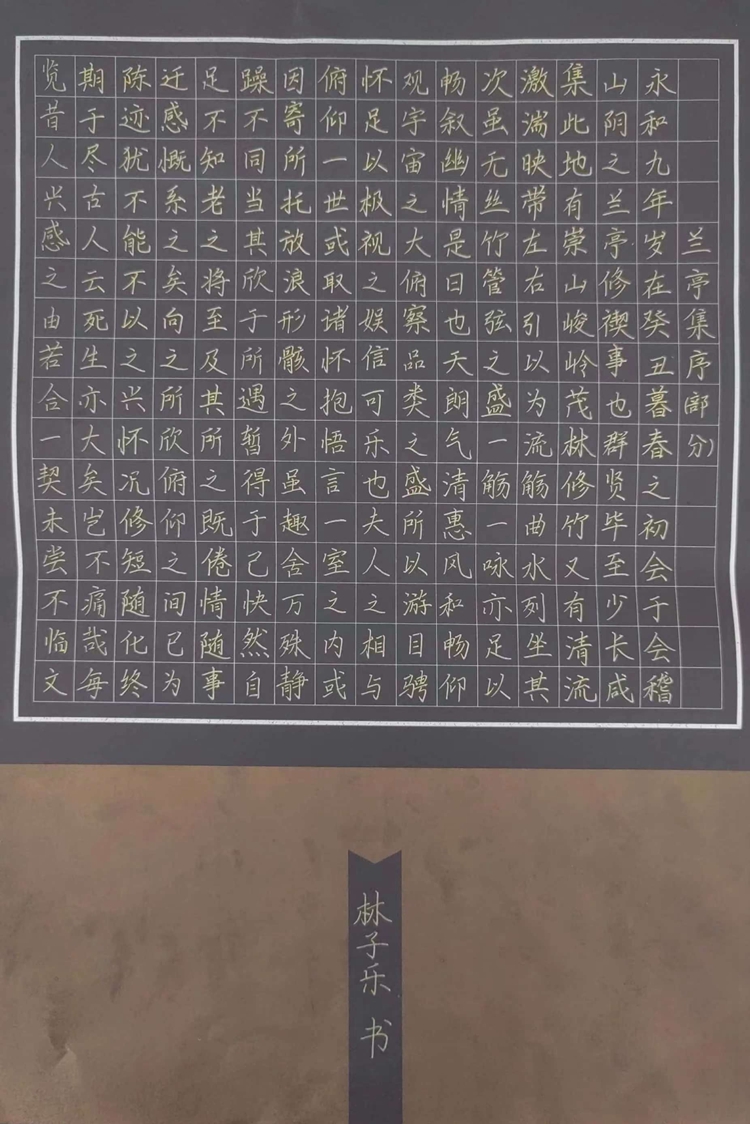 兰亭集序(部分)
永和九年岁在癸丑暮春之初会于会稽
山阴之兰亭修禊事也群贤毕至少长咸
集此地有崇山峻岭茂林修竹又有清流
激湍映带左右引以为流觞曲水列坐其
次虽无丝竹管弦之盛一觞一咏亦足以
畅叙幽情是日也天朗气清惠风和畅仰
观宇宙之大俯察品类之盛所以游目骋
怀足以极视之娱信可乐也夫人之相与
俯仰一世或取诸怀抱悟言一室之内或
因寄所托放浪形骸之外虽趣舍万殊静
躁不同当其欣于所遇暂得于己快然自
足不知老之将至及其所之既倦情随事
迁感慨系之矣向之所欣俯仰之间已为
陈迹犹不能不以之兴怀况修短随化终
期于尽古人云死生亦大矣岂不痛哉每
览昔人兴感之由若合一契未尝不临文
林子乐 书